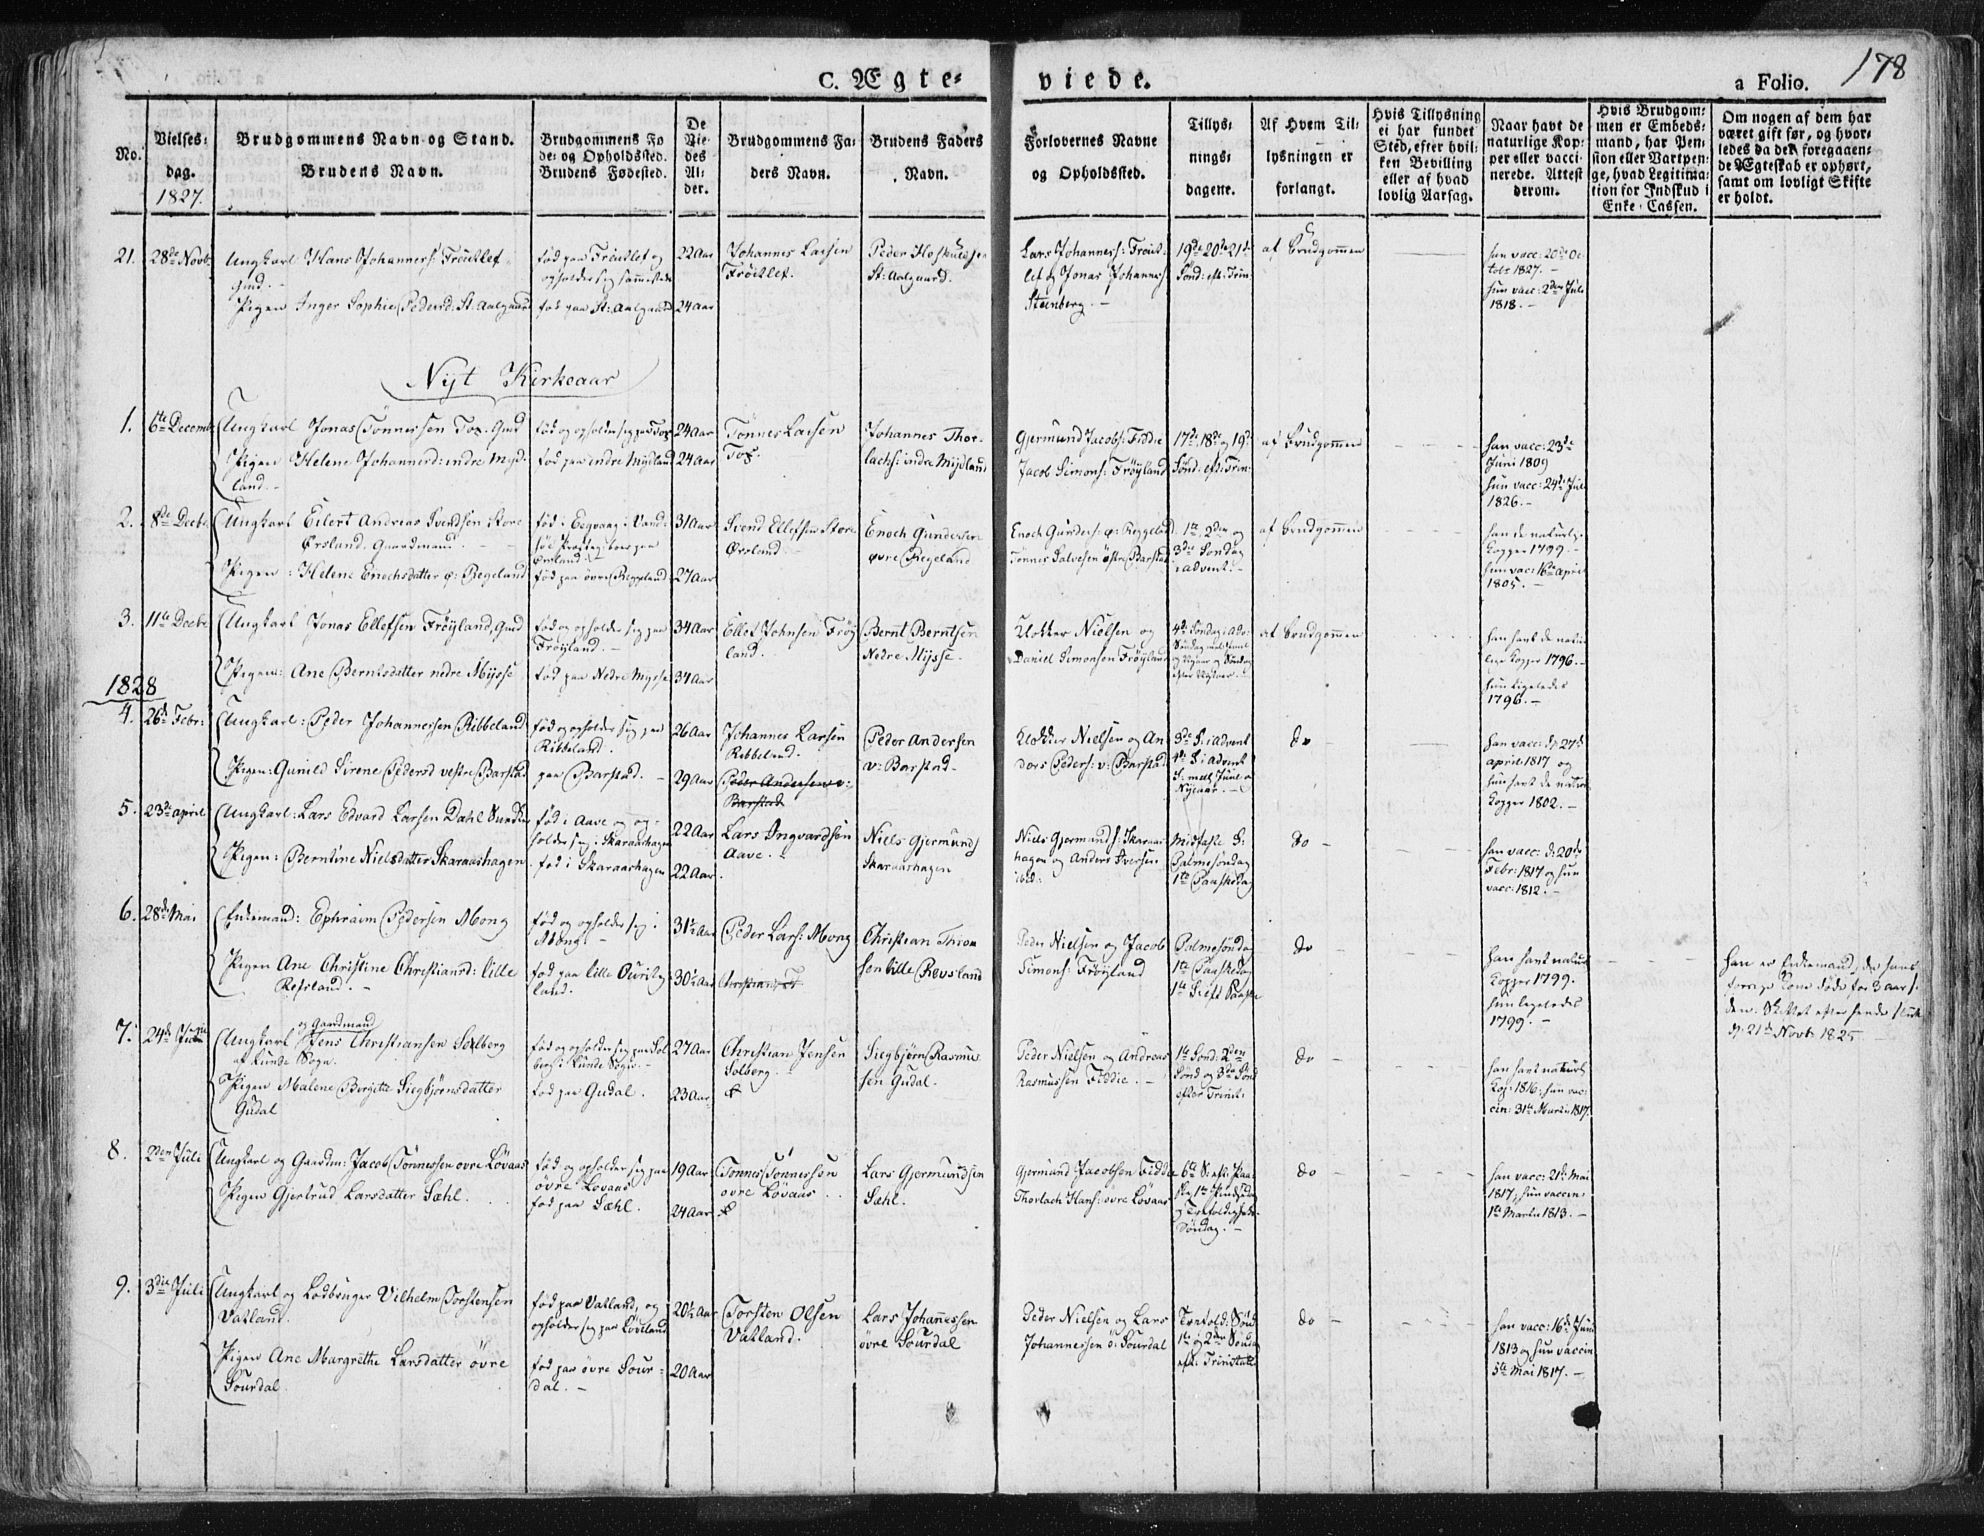 178
C. Ægte-
viede.
a Folio.
No.
Vielses-
dag.
1827.
Brudgommens Navn og Stand.
Brudens Navn.
Brudgommens Fø
de- og Opholdssted.
Brudens Fødested.
De
Vie-
des
Al-
der.
Brudgommens Fa-
ders Navn.
Brudens Faders
Navn.
Forlovernes Navne
og Opholdssted.
Tillys-
nings-
dagene.
Af Hvem Til-
lysningen er
forlangt.
Hvis Tillysning
ei har fundet
Sted, efter hvil-
ken Bevilling
eller af hvad
lovlig Aarsag.
Naar havt de
naturlige Kop-
per eller vacci-
nerede. Attest
derom.
Hvis Brudgom-
men er Embeds-
mand, har Pen-
sion eller Vartpen-
ge, hvad Legitima-
tion for Indskud i
Enke-Cassen.
Om nogen af dem har
været gift før, og hvor-
ledes da det foregaaen-
de Ægteskab er ophørt,
samt om lovligt Skifte
er holdt.
21.
28de Novb.
Ungkarl Hans Johannes:
Gmd. -
Pigen Inger Sophie Pedersd: St: Aalgaard
og
opholder sig sammesteds
fød paa St: Aalgaard
22 Aar
24 Aar
Johannes Larsen
Peder
St: Aalgaard.
Lars Johanness:
Jonas Johanness
Steenberg. -
19de 20de 21de
Sønd: eft: Trin:
af Brudgommen
han vacc: 20de Oc-
tobr 1827. -
hun vacc: 2den Juli
1818. -
Nyt Kirkeaar
1.
6te Decemb
Ungkarl Jonas Tønnessen Tox. Gmd
Pigen Helene Johannesd: indre Mydl-
land. -
fød og opholder sig paa Tox
fød paa indre Mydland
24 Aar
24 Aar
Tønnes Larsen
Tox.
Johannes Thor-
lachs: indre Mydland
Gjermund Jacobs: Fidde
Jacob Simons: Frøyland
17de, 18de og 19de
Sønd: eft: Trin:
af Brudgommen
han vacc: 23de
Juni 1809
hun vacc: 24de Juli
1826. -
2.
8de Decbr
Ungkarl Eilert Andreas Svendsen store
Ørsland, Gaardmand.
Pigen: Helene Enochsdatter ø: Regeland
fød i Eegvaag i Vand-
Ørsland.
fød paa øvre Reggeland
31 Aar
27 Aar
Svend Ellefsen Store
Ørsland.
Enoch Gundersen
øvre Regeland
Enoch Gunders: ø: Reggeland
Tønnes Salvesen østre Barstad
1te, 2den og
3die Søndag
i Advent. -
af Brudgommen
han de naturlige
Kopper 1799. -
hun vac: 16de April
1805. -
3.
11te Decbr
Ungkarl Jonas Ellefsen Frøyland, Gmd
Pigen: Ane Berntsdatter nedre Mysse
fød og opholder sig paa
Frøyland. -
fød paa Nedre Mysse
34 Aar
34 Aar
Ellef Johnsen Frøy
land.
Bernt Berntsen
Nedre Mysse.
Klokker Nielsen og
Daniel Simonsen Frøyland
4de Søndag i Adv:
Søndag
og Nyaar og Søndag
efter Nytaar.
af Brudgommen
han havt de natur
lige Kopper 1796. -
hun ligeledes
1796. -
1828
4.
26de Febr:
Ungkarl: Peder Johannessen Ribbeland
Pigen: Gunild Sirene Pedersd vestre Barstad
fød og opholder sig paa
Ribbeland.
paa Barstad. -
26 Aar
29 Aar
Johannes Larsen
Ribbeland.
Peder Andersen v:
Barstad
Peder Andersen
v: Barstad -
Klokker Nielsen og An
ders Peders: v: Barstad
3de S: i Advent
4de S: i Advent
S: mell Juul og
Nyeaar. -
do -
han vacc: d: 27de
april 1817 og
hun havt de naturl
Kopper 1802. -
5.
23de april
Ungkarl: Lars Edvard Larsen Dahl
Pigen: Berntine Nielsdatter Skaraashagen
fød i Aave og op-
holder sig i Skaraashagen
fød i Skaraashagen
22 Aar
22 Aar
Lars Ingvardsen
Aave. -
Niels Gjermunds
Skaraashagen
Niels Gjermunds: Skaraas-
hagen og Anders Iversen
ibid:
Midfaste S:
Palmesøndag
1te Paaskedag
do -
han vacc: d: 20de
Febr: 1817 og hun
vacc: 1812. -
6.
28de Mai
Enkemand: Ephraim Pedersen Mong
Pigen Ane Christine Christiansd: lille
Refsland. -
fød og opholder sig i
Mong. -
fød paa lille
land.
31½ Aar
30½ Aar
Peder Lars: Mong
Christian T
Christian Thom
sen lille Revsland
Peder Nielsen og Jacob
Simons: Frøyland
Palmesøndag
1te Paaskedag
1te S: eft Paaske
do -
han havt naturl
Kopper 1799.
hun ligeledes
1799. -
han er Enkemand, da hans
forrige Kone døde for 3 aar si
den. Skiftet efter hende sluttet
d: 21de Novb: 1825. -
7.
24de Juni
og Gaardmand
Ungkarl Jens Christiansen Solberg
af Lunde Sogn.
Pigen Malene Bergitte Siegbjørnsdatter
Gudal
fød og opholder sig paa Sol
berg i Lunde Sogn. -
fød paa Gudal.
27 Aar
23 Aar
Christian Jensen
Solberg.
Siegbjørn Rasmus
sen Gudal.
Peder Nielsen og Andreas
Rasmussen Fiddie. -
1te Sønd: 2den
Sønd og 3die Sønd
efter Trinit:
do -
han havt naturl
Kop: 1816; hun vac-
cin: 31te Martii 1817.
8.
2den Juli
Ungkarl og Gaardm: Jacob Tønnessen øvre Løvaas
Pigen Gjertrud Larsdatter Sæhl.
fød og opholder sig paa
øvre Løvaas
fød paa Sæhl.
19 Aar
24 Aar
Tønnes Tønnessen
øvre Løvaas
Lars Gjermundsen
Sæhl.
Gjermund Jacobsen Fidde
Thorlach Hans: øvre Løvaas
6te S: eft: Paa-
ske, 1te Pindsedag
og Trefoldigheds-
Søndag. -
do -
han vacc: 21de Mai
1817, hun vaccin:
1te Martii 1813. -
9.
3die Juli
Ungkarl og Lodbruger Vilhelm Torstensen
Vatland.
Pigen Ane Margrethe Larsdatter øvre
Sourdal.
fød paa Vatland, og
opholder sig paa Løvland
fød paa øvre Sour-
dal. -
20½ Aar
20 Aar
Torsten Olsen
Vatland.
Lars Johannessen
øvre Sourdal
Peder Nielsen og Lars
Johannessen ø: Sourdal
Trefold: Sønd
1te og 2den Søndag
eft: Trinitatis
do -
han vacc: 16de Juni
1813 og hun vaccin
5te Mai 1817. -